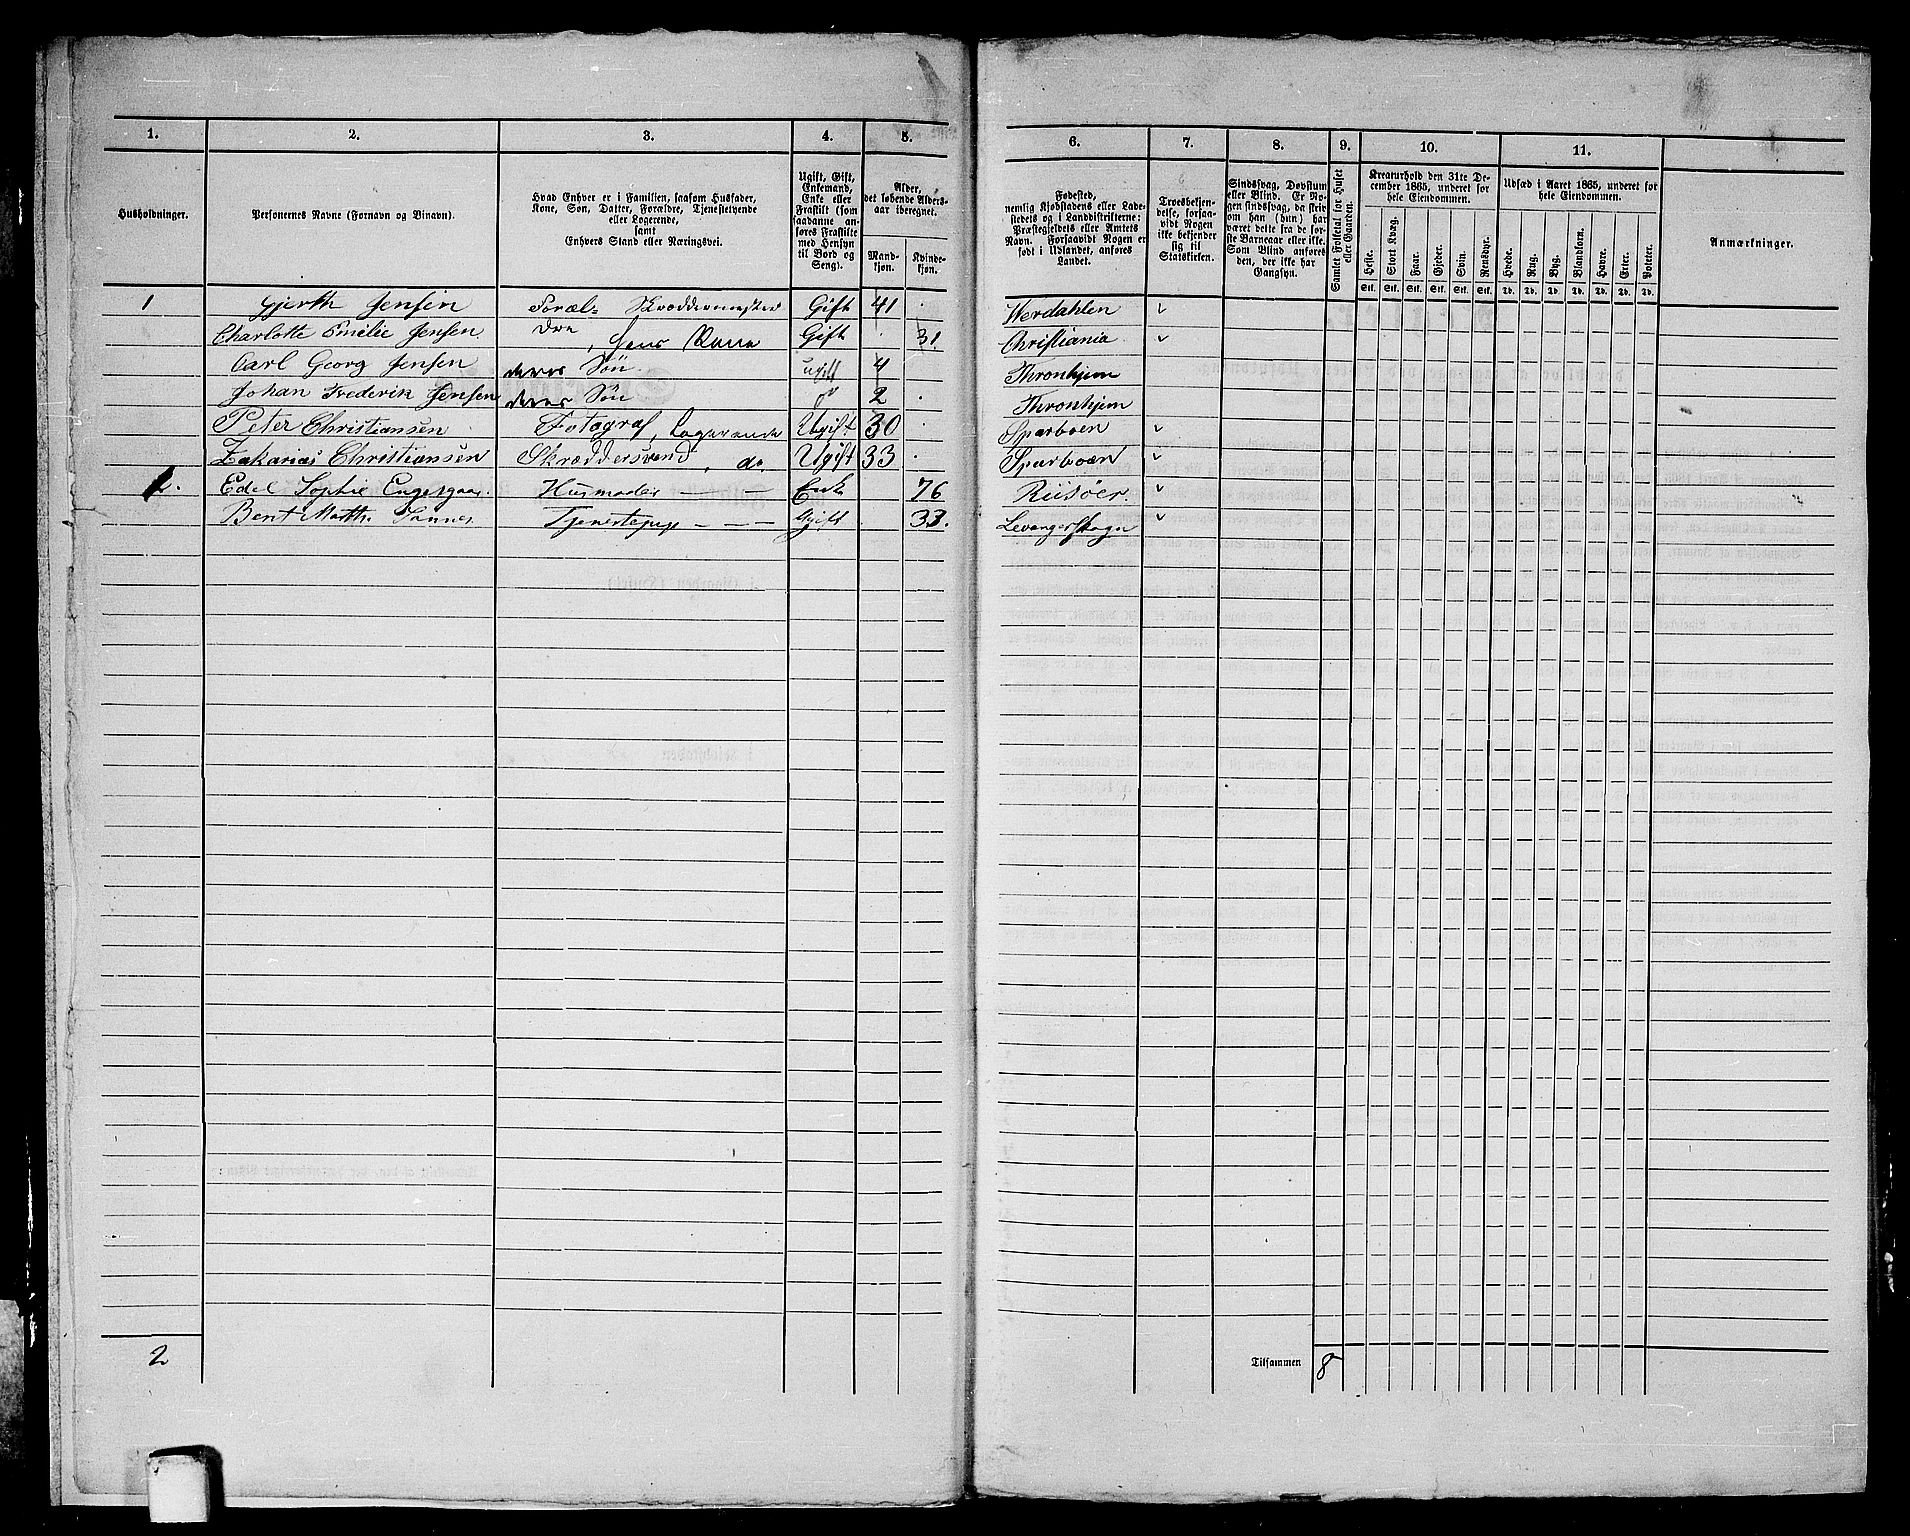 1. 2. 3. 4. 5. 6. 7. 8. 9. 10. 11.
Husholdninger.
Personernes Navne (Fornavn og Binavn).
Hvad Enhver er i Familien, saasom Husfader,
Kone, Søn, Datter, Forældre, Tjenestetyende
eller Logerende,
samt
Enhvers Stand eller Næringsvei.
Ugift, Gift,
Enkemand,
Enke eller
Fraskilt (som
saadanne an-
føres Fraskilte
med Hensyn
til Bord og
Seng).
Alder,
det løbende Alders-
aar iberegnet.
Mand-
kjøn.
Kvinde-
kjøn.
Fødested,
nemlig Kjøbstadens eller Lade-
stedets og i Landdistrikterne:
Præstegjeldets eller Amtets
Navn. Forsaavidt Nogen er
født i Udlandet, anføres
Landet.
Troesbekjen-
delse, forsaa-
vidt Nogen
ikke bekjender
sig til
Statskirken.
Sindssvag, Døvstum
eller Blind. Er No-
gen sindssvag, da skriv
om han (hun) har
været dette fra de før-
ste Barneaar eller ikke.
Som Blind anføres
den, der ikke har
Gangsyn.
Samlet Folketal for Huset
eller Gaarden.
Kreaturhold den 31te De-
cember 1865, underet før
hele Eiendommen.
Heste. Stort Kvæg. Faar. Gjeder. Svin. Rensdyr.
Stk. Stk. Stk. Stk. Stk. Stk.
Udsæd i Aaret 1865, underet før
hele Eiendommen.
Hvede. Rug. Byg. Blandkorn. Havre. Erter. Poteter.
Td. Td. Td. Td. Td. Td. Td.
Anmærkninger.
1 Gjerth Jensen Foræl- Skræddermester Gift 41 Werdahlen
Charlotte Emelie Jensen dre, Hans Kone Gift 31. Christiania
Carl Georg Jensen deres Søn ugift 4 Thronhjem
Johan Frederik Jensen deres Søn do 2 Thronhjem
Peter Christiansen Fotograf, Logerende Ugift 30 Sparboen
Zakarias Christiansen Skræddersvend, do. Ugift 33 Sparboen
2. Edel Sophie Husmoder Enke 76 Riisöer.
Bent Ugift 33. Levangerskogn
2 Tilsammen 8